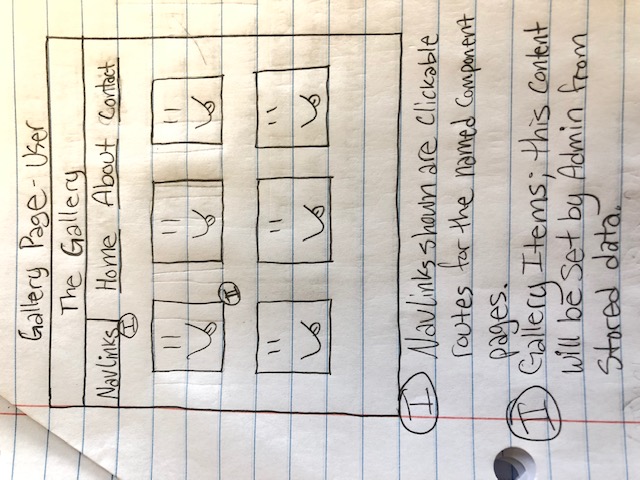 Gallery Page - User
The Gallery
Navlinks Home About Contact
I
II
I Navlinks shown are clickable
routes for the named component
pages.
I Gallery Items; this content
will be set by Admin from
stored data.